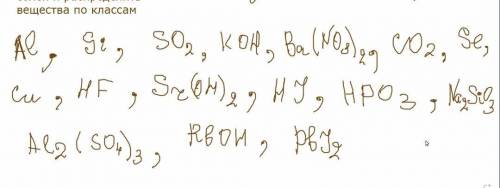 вещества по классам
Al, Si, SO2, KOH, Ba(NO3)2, CO2, Se,
Cu, HF, Sr(OH)2, HJ, HPO3, Na2SiO3
Al2(SO4)3, RbOH, PbJ2